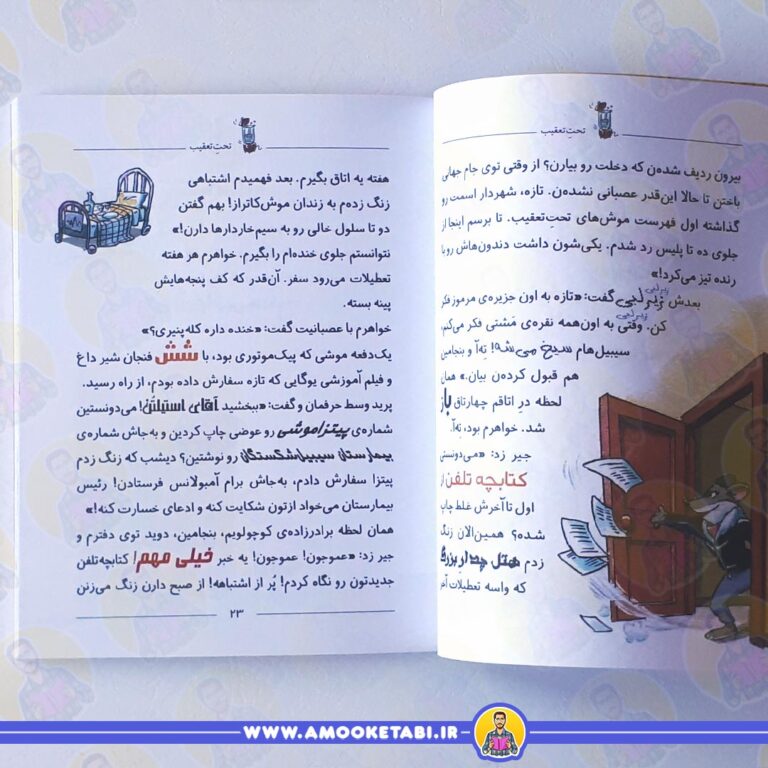 تحتِ‌تعقیب
بیرون ردیف شده‌ن که دخلت رو بیارن؟ از وقتی توی جام جهانی
باختن تا حالا این‌قدر عصبانی نشده‌ن. تازه، شهردار اسمت رو
گذاشته اول فهرست موش‌های تحتِ‌تعقیب. تا برسم اینجا از
جلوی ده تا پلیس رد شدم. یکی‌شون داشت دندون‌هاش رو با
رنده تیز می‌کرد!»
بعدش زیرلبی گفت: «تازه به اون جزیره‌ی مرموز فکر
کن. وقتی به اون‌همه نقره‌ی مَشتی فکر می‌کنم،
سیبیل‌هام سیخ می‌شه! تِه‌آ و بنجامین
هم قبول کرده‌ن بیان.» همان
لحظه درِ اتاقم چهارتاق باز
شد. خواهرم بود، تِه‌آ.
جیر زد: «می‌دونستی
کتابچه تلفن از
اول تا آخرش غلط چاپ
شده؟ همین‌الان زنگ
زدم هتل چدارِ بزرگ
که واسه تعطیلات آخر
تحتِ‌تعقیب
هفته یه اتاق بگیرم. بعد فهمیدم اشتباهی
زنگ زده‌م به زندان موش‌کاتراز! بهم گفتن
دو تا سلول خالی رو به سیم‌خاردارها دارن!»
نتوانستم جلوی خنده‌ام را بگیرم. خواهرم هر هفته
تعطیلات می‌رود سفر. آن‌قدر که کف پنجه‌هایش
پینه بسته.
خواهرم با عصبانیت گفت: «خنده داره کله‌پنیری؟»
یک‌دفعه موشی که پیک‌موتوری بود، با شش فنجان شیر داغ
و فیلم آموزشی یوگایی که تازه سفارش داده بودم، از راه رسید.
پرید وسط حرفمان و گفت: «ببخشید آقای استیلتُن! می‌دونستین
شماره‌ی پیتزاموشی رو عوضی چاپ کردین و به‌جاش شماره‌ی
بیمارستان سیبیل‌شکستگان رو نوشتین؟ دیشب که زنگ زدم
پیتزا سفارش دادم، به‌جاش برام آمبولانس فرستادن! رئیس
بیمارستان می‌خواد ازتون شکایت کنه و ادعای خسارت کنه!»
همان لحظه برادرزاده‌ی کوچولویم، بنجامین، دوید توی دفترم و
جیر زد: «عموجون! عموجون! یه خبر خیلی مهم! کتابچه‌تلفن
جدیدتون رو نگاه کردم! پُر از اشتباهه! از صبح دارن زنگ می‌زنن
۲۳
WWW.AMOOKETABI.IR